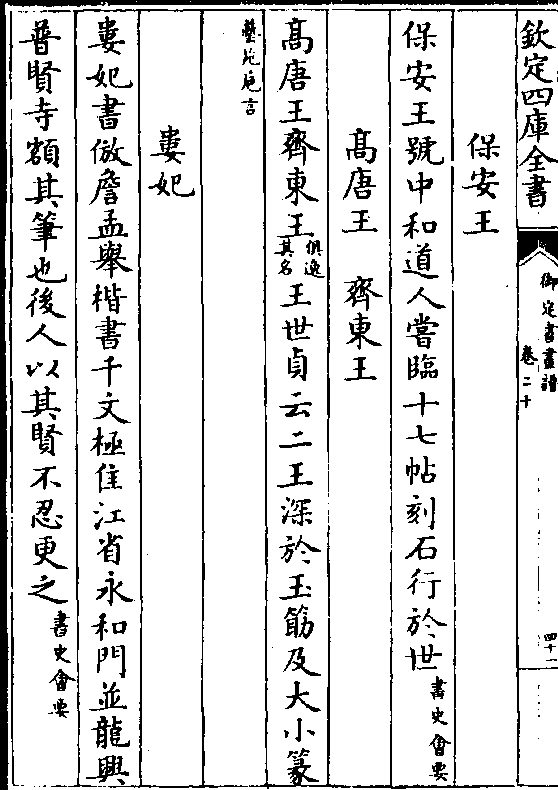 欽定四庫全書
御定書畫譜
卷二十
四十一
保安王
保安王號中和道人嘗臨十七帖刻石行於世書史會要
髙唐王　齊東王
髙唐王齊東王俱逸其名王世貞云二王深於玉筯及大小篆
藝苑巵言
婁妃
婁妃書倣詹孟舉楷書千文極佳江省永和門並龍興
普賢寺額其筆也後人以其賢不忍更之書史會要